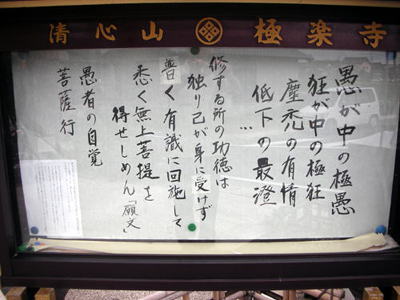 清心山 極楽寺
愚が中の極愚
狂が中の極狂
塵禿の有情
低下の最澄
…
修する所の功徳は
独り己が身に受けず
普く有識に回施して
悉く無上菩提を
得せしめん「願文」
愚者の自覚
菩薩行